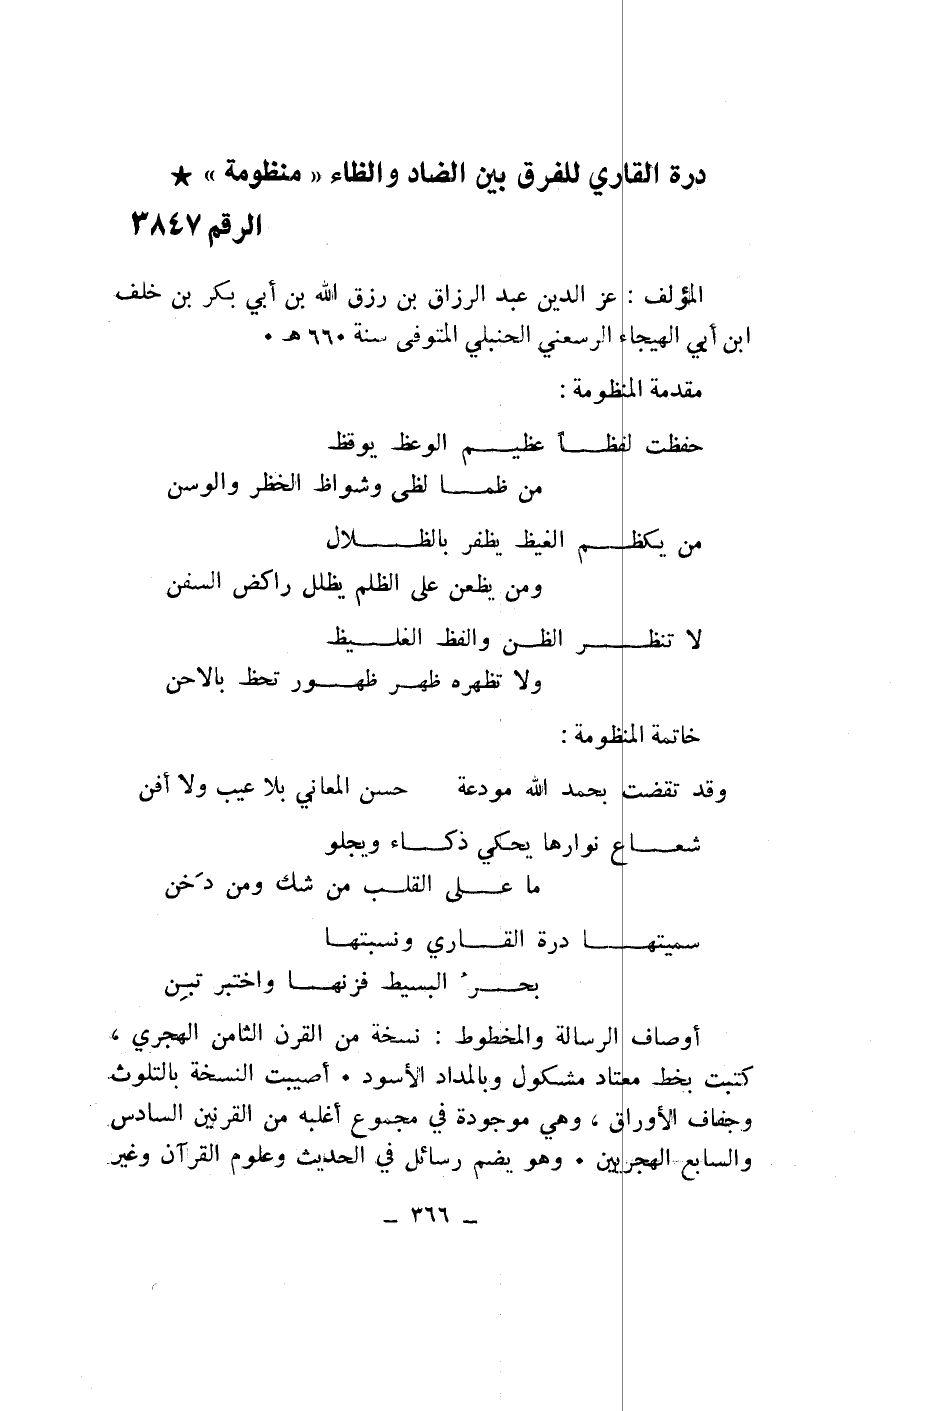 درة القاري للفرق بين الضاد والظاء « منظومة » ★
الرقم ٣٨٤٧
المؤلف : عز الدين عبد الرزاق بن رزق الله بن أبي بكر بن خلف
ابن أبي الهيجاء الرسعني الحنبلي المتوفى سنة ٦٦٠ هـ ٠
مقدمة المنظومة :
حفظت لفظـــاً عظيـــم الوعظ يوقظ
من ظمـــا لظى وشواظ الخظر والوسن
من يكظـــم الغيظ يظفر بالظـــلال
ومن يظعن على الظلم يظلل راكض السفن
لا تنظـــر الظـن والفظ الغلـــيظ
ولا تظهره ظهـر ظهـــور تحظ بالاحن
خاتمة المنظومة :
وقد تقضت بحمد الله مودعة حسن المعاني بلا عيب ولا أفن
شعـــاع نوارها يحكي ذكـــاء ويجلو
ما عـــلى القلـب من شك ومن دَخن
سميتهـــا درة القـــاري ونسبتهـــا
بحـــرُ البسيط فزنهـــا واختبر تبـِن
أوصاف الرسالة والمخطوط : نسخة من القرن الثامن الهجري ،
كتبت بخط معتاد مشكول وبالمداد الأسود ٠ أصيبت النسخة بالتلوث
وجفاف الأوراق ، وهي موجودة في مجموع أغلبه من القرنين السادس
والسابع الهجريين ٠ وهو يضم رسائل في الحديث وعلوم القرآن وغير
ـ ٣٦٦ ـ